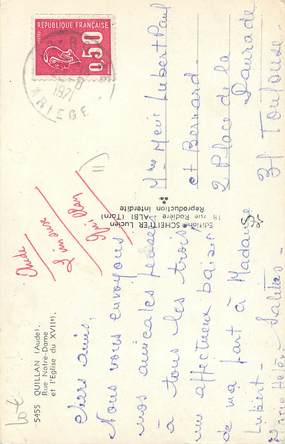 RÉPUBLIQUE FRANÇAISE
0,50
ARIEGE
197
5455 QUILLAN (Aude)
Rue Notre-Dame
et l'Eglise du XVII
Aude
Limoux
Quillan
Chers amis,
Nous vous envoyons
nos amicales pensées
à tous les trois
un affectueux baiser
de ma part à Madame
Lubert.
Editions SCHEITLER Lucien
18, rue Radière - ALBI (Tarn)
Reproduction interdite
Mme Meni Lubert Paul
et Bernard.
2 Place de la
Daurade
31 Toulouse